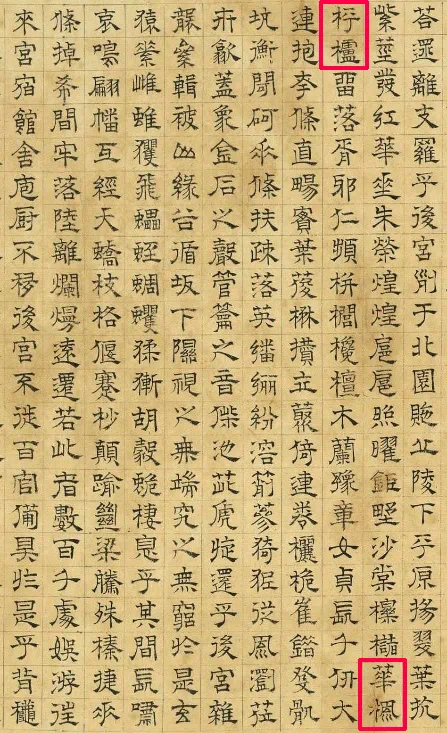 荅遝離支羅乎後宮列于北園貤丘陵下乎原揚翠葉抗
紫莖發紅華垂朱榮煌煌扈扈照曜鉅野沙棠櫟櫧華楓
枰櫨留落胥邪仁頻栟櫚欃檀木蘭豫章女貞長千仞大
連抱夸條直暢實葉葰楙攢立叢倚連卷欐佹崔錯癹骫
坑衡閜砢垂條扶疎落英繙纚紛溶箾蔘猗狔從風瀏莅
卉歙蓋象金石之聲管籥之音傑池茈虒旋還乎後宮雜
襲絫輯被山緣谷循坂下隰視之無端究之無窮於是玄
猿素雌蜼玃飛蠝蛭蜩蠷猱獑胡豰蛫棲息乎其間長嘯
哀鳴翩幡互經夭蟜枝格偃蹇杪顛踰絕梁騰殊榛捷垂
條掉希間牢落陸離爛熳遠遷若此者數百千處娛游往
來宮宿館舍庖廚不移後宮不徙百官備具於是乎背穐